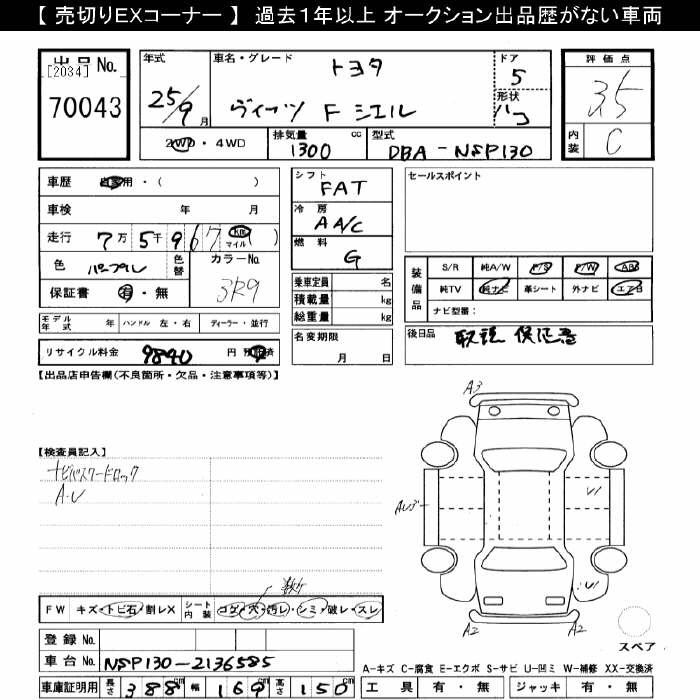 【 売切りEXコーナー 】 過去１年以上 オークション出品歴がない車両
出品 No.
[2034]
70043
年式
25/9月
車名・グレード
トヨタ
ヴィッツ F シエル
ドア
5
形状
ハコ
評価点
3.5
内装
C
2WD・4WD
排気量 cc
1300
型式
DBA-NSP130
車歴 自家用・( )
車検 年 月
走行 7万 5千 9 6 7 Km マイル ( )
色 パープル 色替 カラーNo. 3R9
保証書 有・無
モデル年式 年 ハンドル 左・右 ディーラー・並行
リサイクル料金 9840 円 預託済
シフト
FAT
冷房
AAC
燃料
G
乗車定員 名
積載量 kg
総重量 kg
名変期限
月 日
セールスポイント
装備品
S/R 純A/W P/S P/W ABS
純TV 純ナビ 革シート 外ナビ エアB
ナビ型番:
後日品
取説 保証書
【出品店申告欄(不良箇所・欠品・注意事項等)】
【検査員記入】
ナビパスワードロック
A・U
A3
AU3
U1
U1
A2
A2
スペア
FW キズ・トビ石・割レX シート内装 コゲ・穴・汚レ・シミ・破レ・スレ
登録 No.
車台 No. NSP130-2136585
車庫証明用 長さ 388cm 幅 169cm 高さ 150cm
A-キズ C-腐食 E-エクボ S-サビ U-凹ミ W-補修 XX-交換済
工具 有・無 ジャッキ 有・無